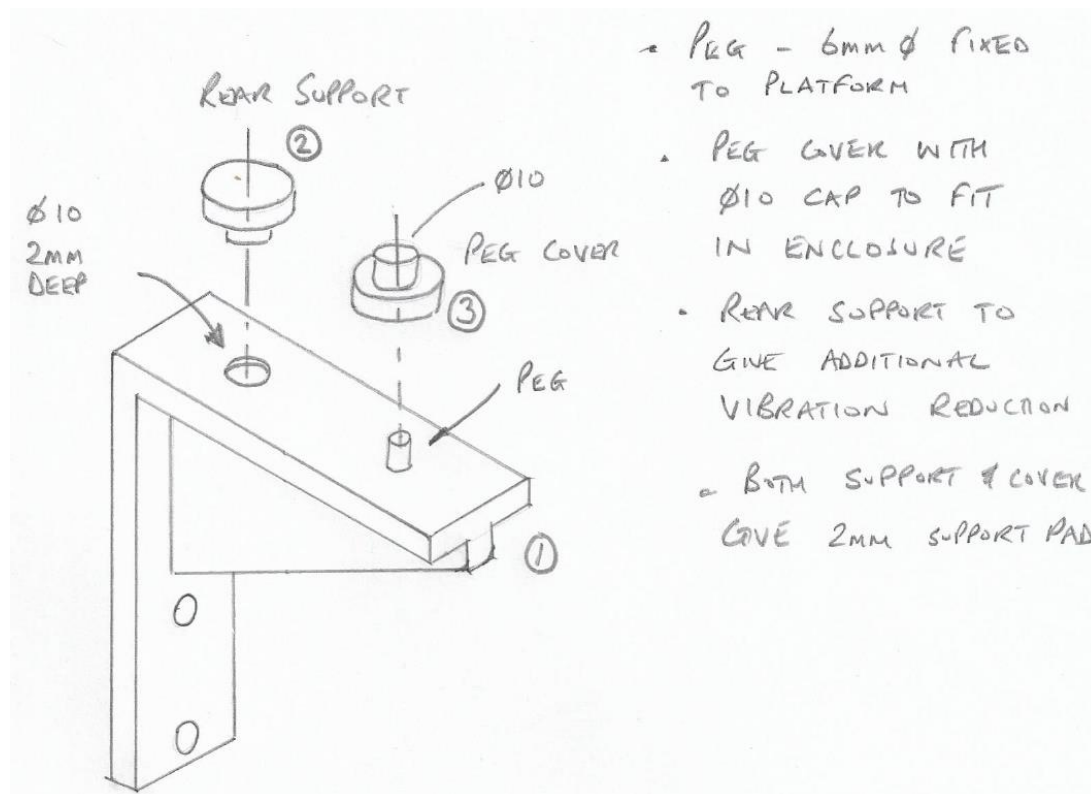 REAR SUPPORT
②
Ø10
2MM
DEEP
Ø10
PEG COVER
③
PEG
①
• PEG - 6mm Ø FIXED
TO PLATFORM
• PEG COVER WITH
Ø10 CAP TO FIT
IN ENCLOSURE
• REAR SUPPORT TO
GIVE ADDITIONAL
VIBRATION REDUCTION
• BOTH SUPPORT & COVER
GIVE 2MM SUPPORT PAD